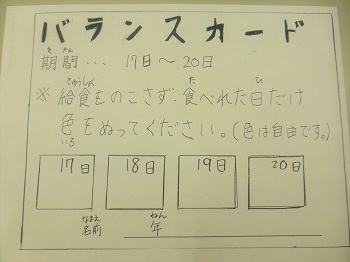 バランスカード
きかん
期間... 17日〜20日
きゅうしょく た ひ
※給食をのこさず食べれた日だけ
いろ
色をぬってください。(色は自由です。)
17日 18日 19日 20日
なまえ ねん
名前 年